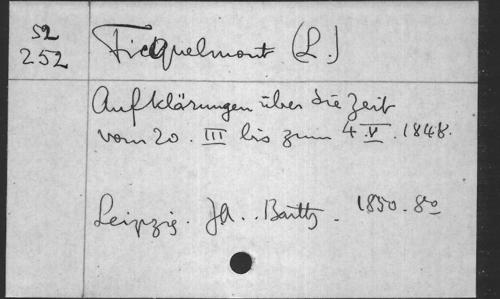 52
252
Ficquelmont (L.)
Aufklärungen über die Zeit
vom 20. III bis zum 4 V. 1848.
Leipzig. Jh. Barth. 1850. 8o